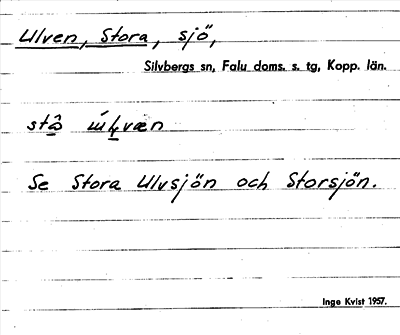 Ulven, Stora, sjö,
Silvbergs sn, Falu doms. s. tg, Kopp. län.
Se Stora Ulvsjön och Storsjön.
Inge Kvist 1957.